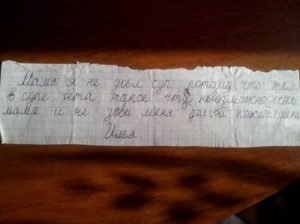 Мама я не доел суп потому что там
в супе чета такое что невозможно есть
мама и не зови меня домой пожалуйста
Илья